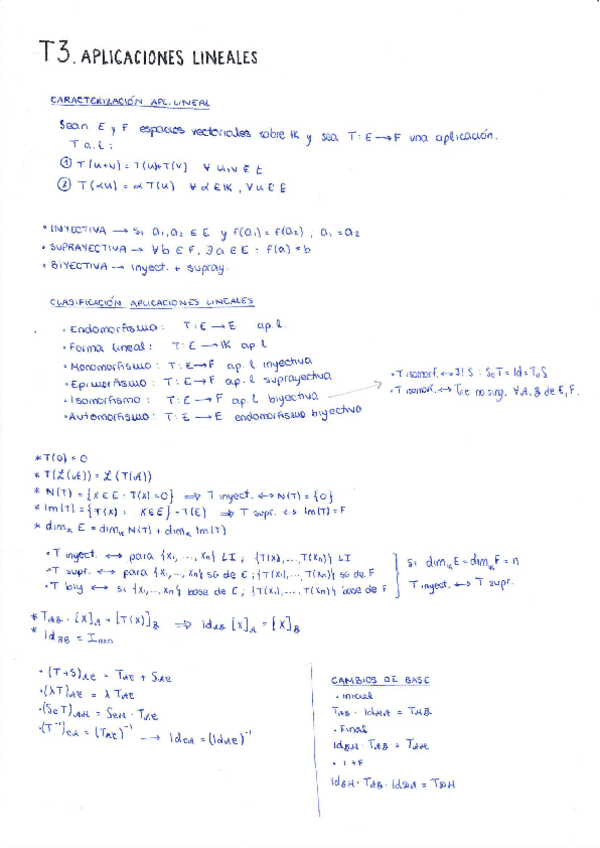 T3. APLICACIONES LINEALES
CARACTERIZACIÓN APL. LINEAL
Sean E y F espacios vectoriales sobre IK y sea T: E → F una aplicación.
T a.l:
① T(u+v) = T(u)+T(v) ∀ u,v ∈ E
② T(αu) = α T(u) ∀ α ∈ IK, ∀ u ∈ E
• INYECTIVA → si a₁,a₂ ∈ E y f(a₁) = f(a₂), a₁ = a₂
• SUPRAYECTIVA → ∀b ∈ F, ∃ a ∈ E : f(a) = b
• BIYECTIVA → inyect. + supray.
CLASIFICACIÓN APLICACIONES LINEALES
• Endomorfismo: T: E → E ap. l.
• Forma lineal: T: E → IK ap. l
• Monomorfismo: T: E → F ap. l inyectiva
• Epimorfismo: T: E → F ap. l suprayectiva
• Isomorfismo: T: E → F ap. l biyectiva
• Automorfismo: T: E → E endomorfismo biyectivo
• T isomorf. ↔ ∃! S : S∘T = Id = T∘S
• T isomorf. ↔ no sing. ∀ A, B de E, F.
* T(0) = 0
* T(ℒ(E)) = ℒ(T(E))
* N(T) = {X ∈ E : T(X) = 0} ⇒ T inyect. ↔ N(T) = {0}
* Im(T) = {T(X) : X ∈ E} = T(E) ⇒ T supr. ↔ Im(T) = F
* dim E = dim N(T) + dim Im(T)
• T inyect. ↔ para {X₁, ..., Xₙ} LI ; {T(X₁), ..., T(Xₙ)} LI
• T supr. ↔ para {X₁, ..., Xₙ} SG de E ; {T(X₁), ..., T(Xₙ)} SG de F
• T biy ↔ si {X₁, ..., Xₙ} base de E ; {T(X₁), ..., T(Xₙ)} base de F
Si dim E = dim F = n
T inyect. ↔ T supr.
* T_AB · [X]_A = [T(X)]_B ⇒ Id_AB [X]_A = [X]_B
* Id_BB = I
• (T+S)_AE = T_AE + S_AE
• (λT)_AE = λ T_AE
• (S∘T)_AH = S_EH · T_AE
• (T⁻¹)_EA = (T_AE)⁻¹ → Id_EA = (Id_AE)⁻¹
CAMBIOS DE BASE
• Inicial
• Final
Id_BH · T_AB = T_AH
• I+F